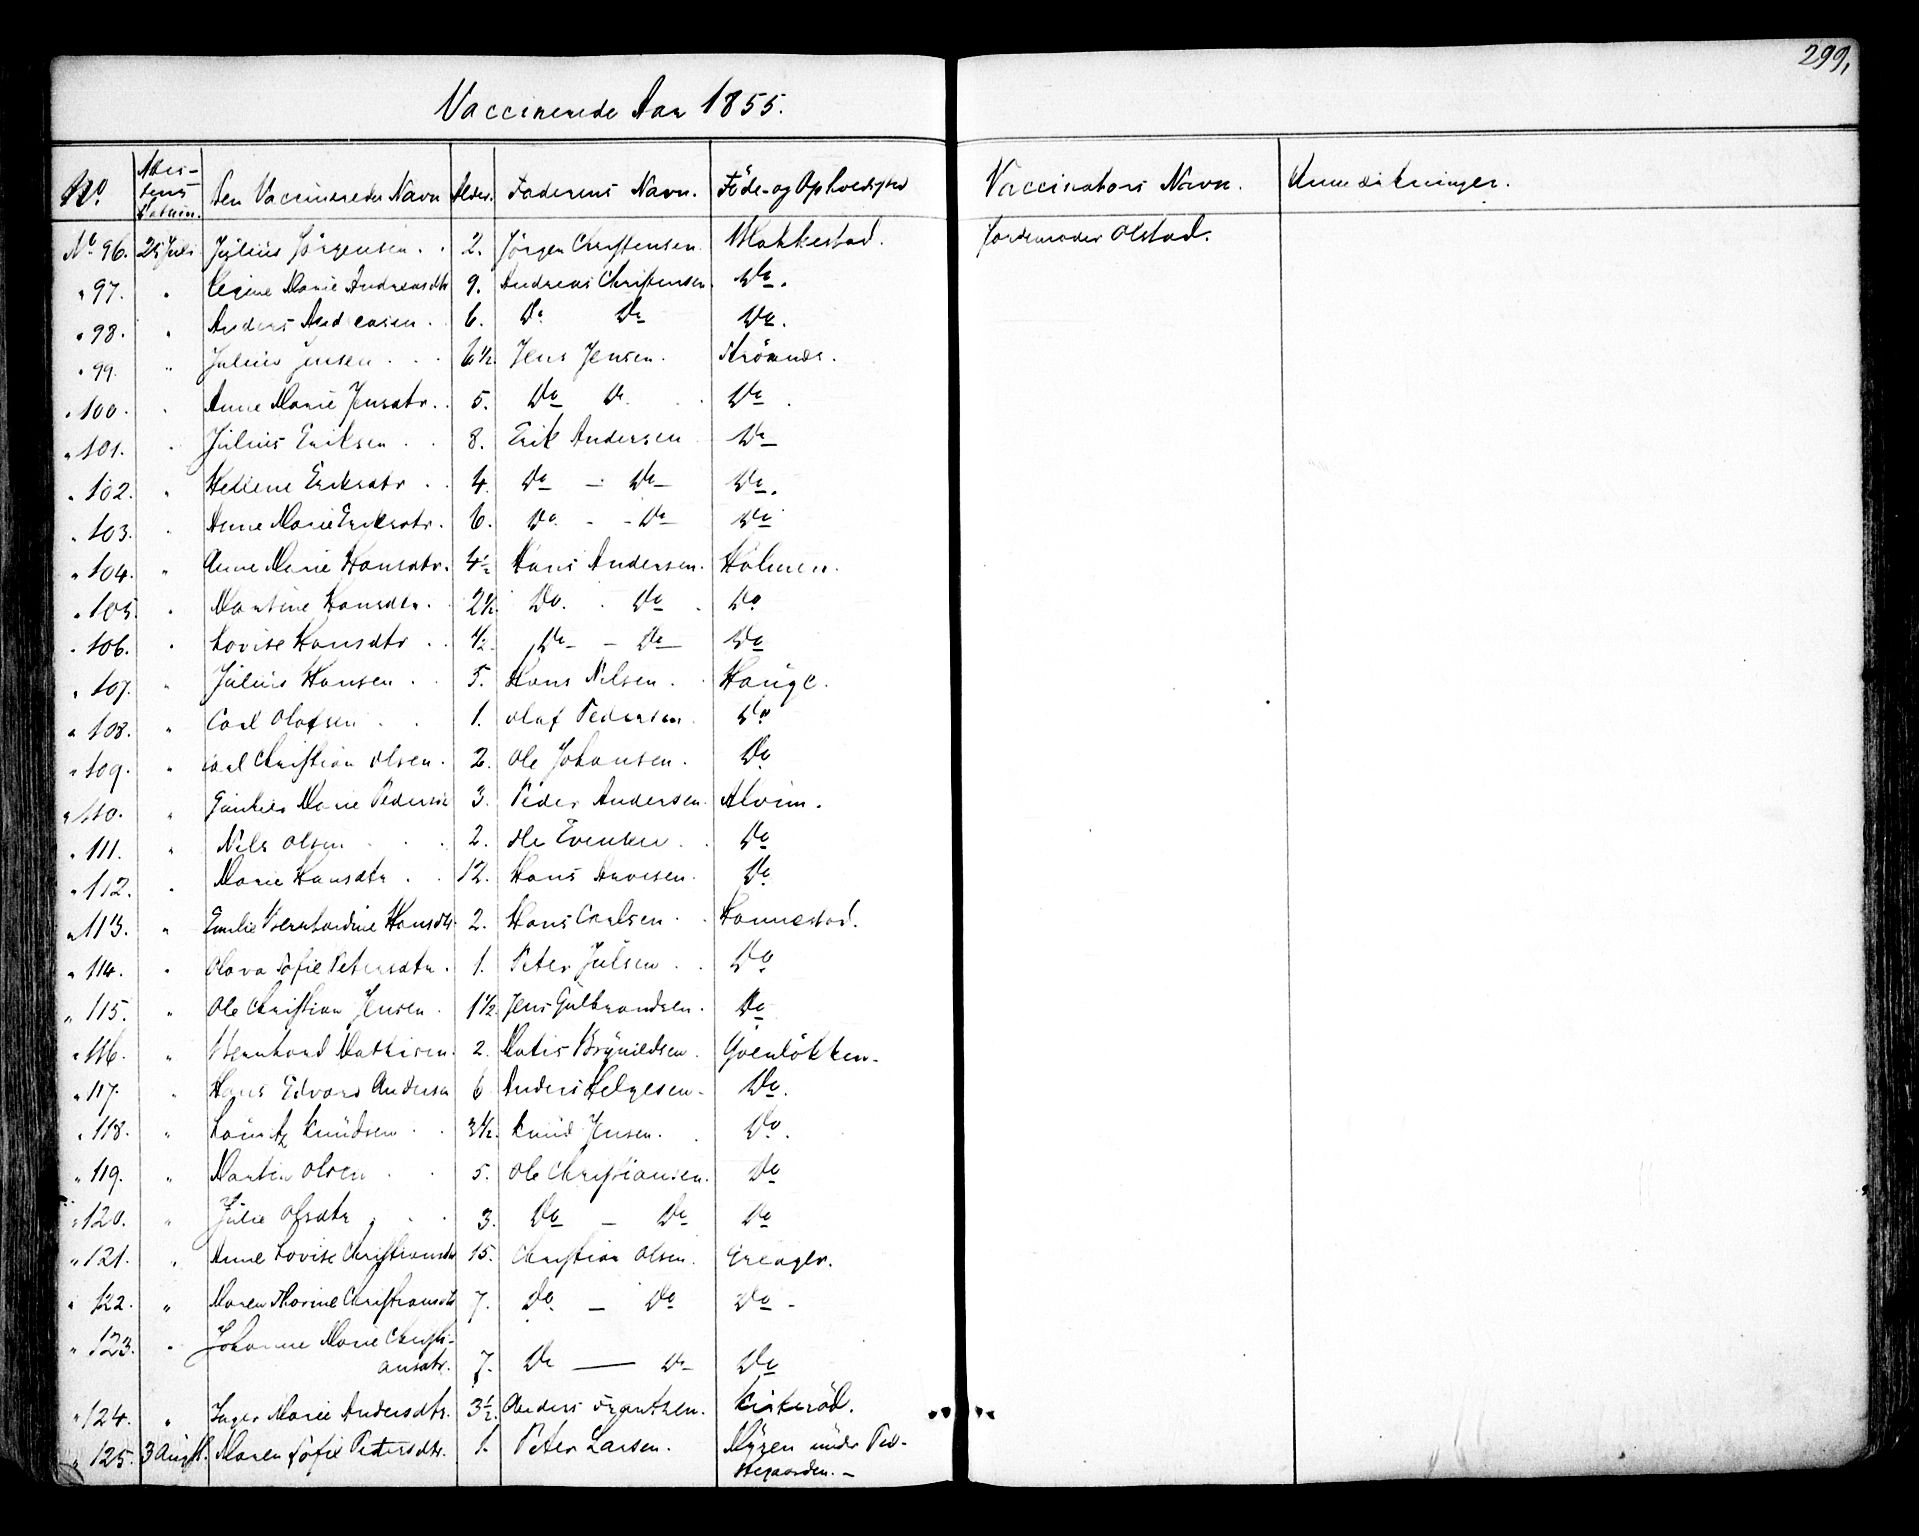 299,
Vaccinerede Aar 1855.
No. Attestens Datum. Den Vaccineredes Navn Alder. Faderens Navn. Føde- og Opholdssted Vaccinators Navn. Anmærkninger.
No 96. 25 Juli Julius Jørgensen. 2. Jørgen Christensen. Makkestad. Jordemoder Olstad.
" 97. " Marie Andreasdtr 9. Andreas Christensen. Do.
" 98. " Anders Andreasen. 6. Do Do Do.
" 99. " Julius Jensen. 6½ Jens Jensen.
" 100. " Anne Marie Jensdtr. 5. Do Do. Do.
" 101. " Julius Eriksen. 8. Erik Andersen Do
" 102. " Hellene Eriksdtr. 4. Do - Do Do.
" 103. " Anne Marie Eriksdtr. 6. Do. - Do Do
" 104. " Anne Marie Hansdtr. 4½ Hans Andersen. Holmen.
" 105. " Martine Hansdtr. 2½ Do. Do Do
" 106. " Lovise Hansdtr. ½. Do - Do Do
" 107. " Julius Hansen. 5. Hans Nilsen. Hauge.
" 108. " Carl Olafsen. 1. Olaf Pedersen. Do
" 109. " Carl Christian Olsen. 2. Ole Johansen. Do
" 110. " Marie Pedersdtr 3. Peder Andersen. Alvim.
" 111. " Nils Olsen. 2. Ole Evensen. Do
" 112. " Marie Hansdtr. 12. Hans Arvesen. Do
" 113. " Emilie Bernhardine Hansdtr. 2. Hans Carlsen. Hannestad.
" 114. " Olava Sofie Petersdtr. 1. Peter Julsen. Do
" 115. " Ole Christian Jensen. 1½. Jens Gulbrandsen. Do
" 116. " Bernhard Mathisen. 2. Matis Brynildsen. Gvenløkken.
" 117. " Hans Edvard Andersen 6 Anders Helgesen. Do.
" 118. " Lauritz Knudsen. 3½. Knud Jensen. Do.
" 119. " Martin Olsen. 5. Ole Christiansen. Do
" 120. " Julie Olsdtr. 3. Do - Do Do
" 121. " Anne Lovise Christiansdtr 15. Christian Olsen.
" 122. " Maren Marine Christiansdtr 7. Do. - Do Do -
" 123. " Johanne Marie Christi-
ansdtr. 7. Do - Do Do
" 124. " Inger Marie Andersdtr. 3½. Anders Frantsen. Kirkerød.
" 125. 3 August. Maren Sofie Petersdtr. 1. Peter Larsen. Myren under Præ-
stegaarden. -